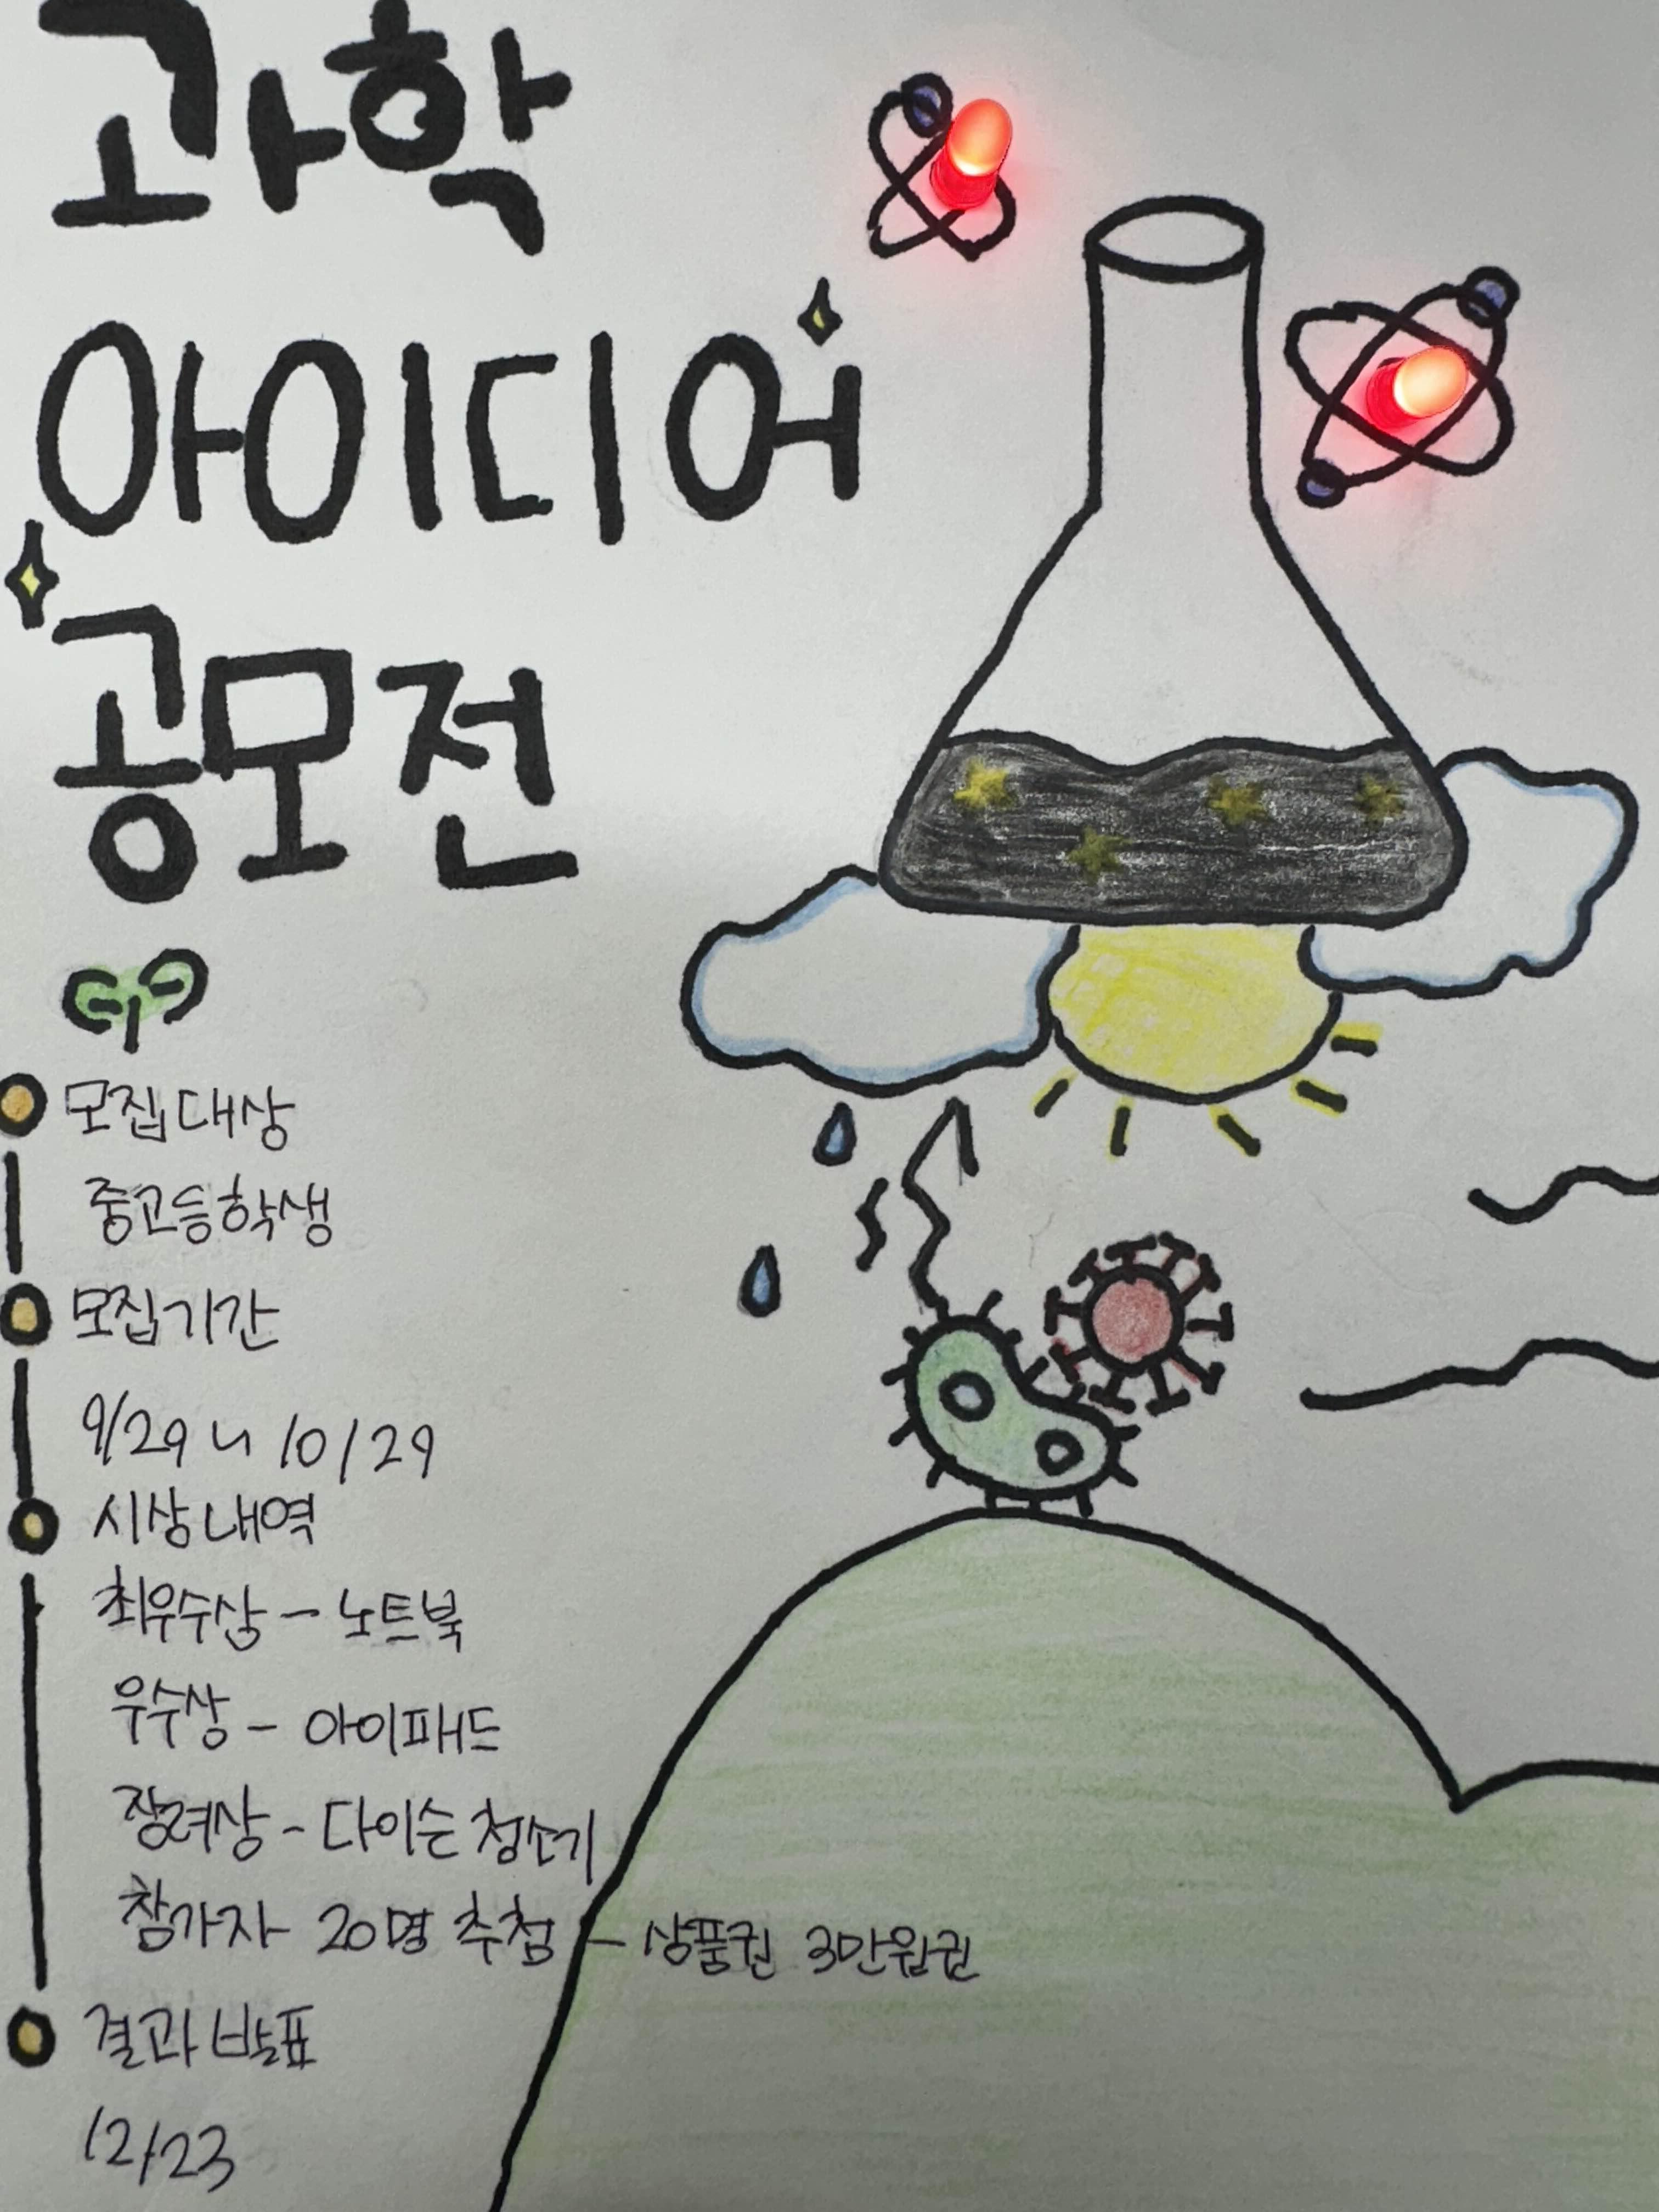 과학
아이디어
공모전
모집대상
중고등학생
모집기간
9/29 ~ 10/29
시상내역
최우수상 - 노트북
우수상 - 아이패드
장려상 - 다이슨 청소기
참가자 20명 추첨 - 상품권 3만원권
결과발표
12/23